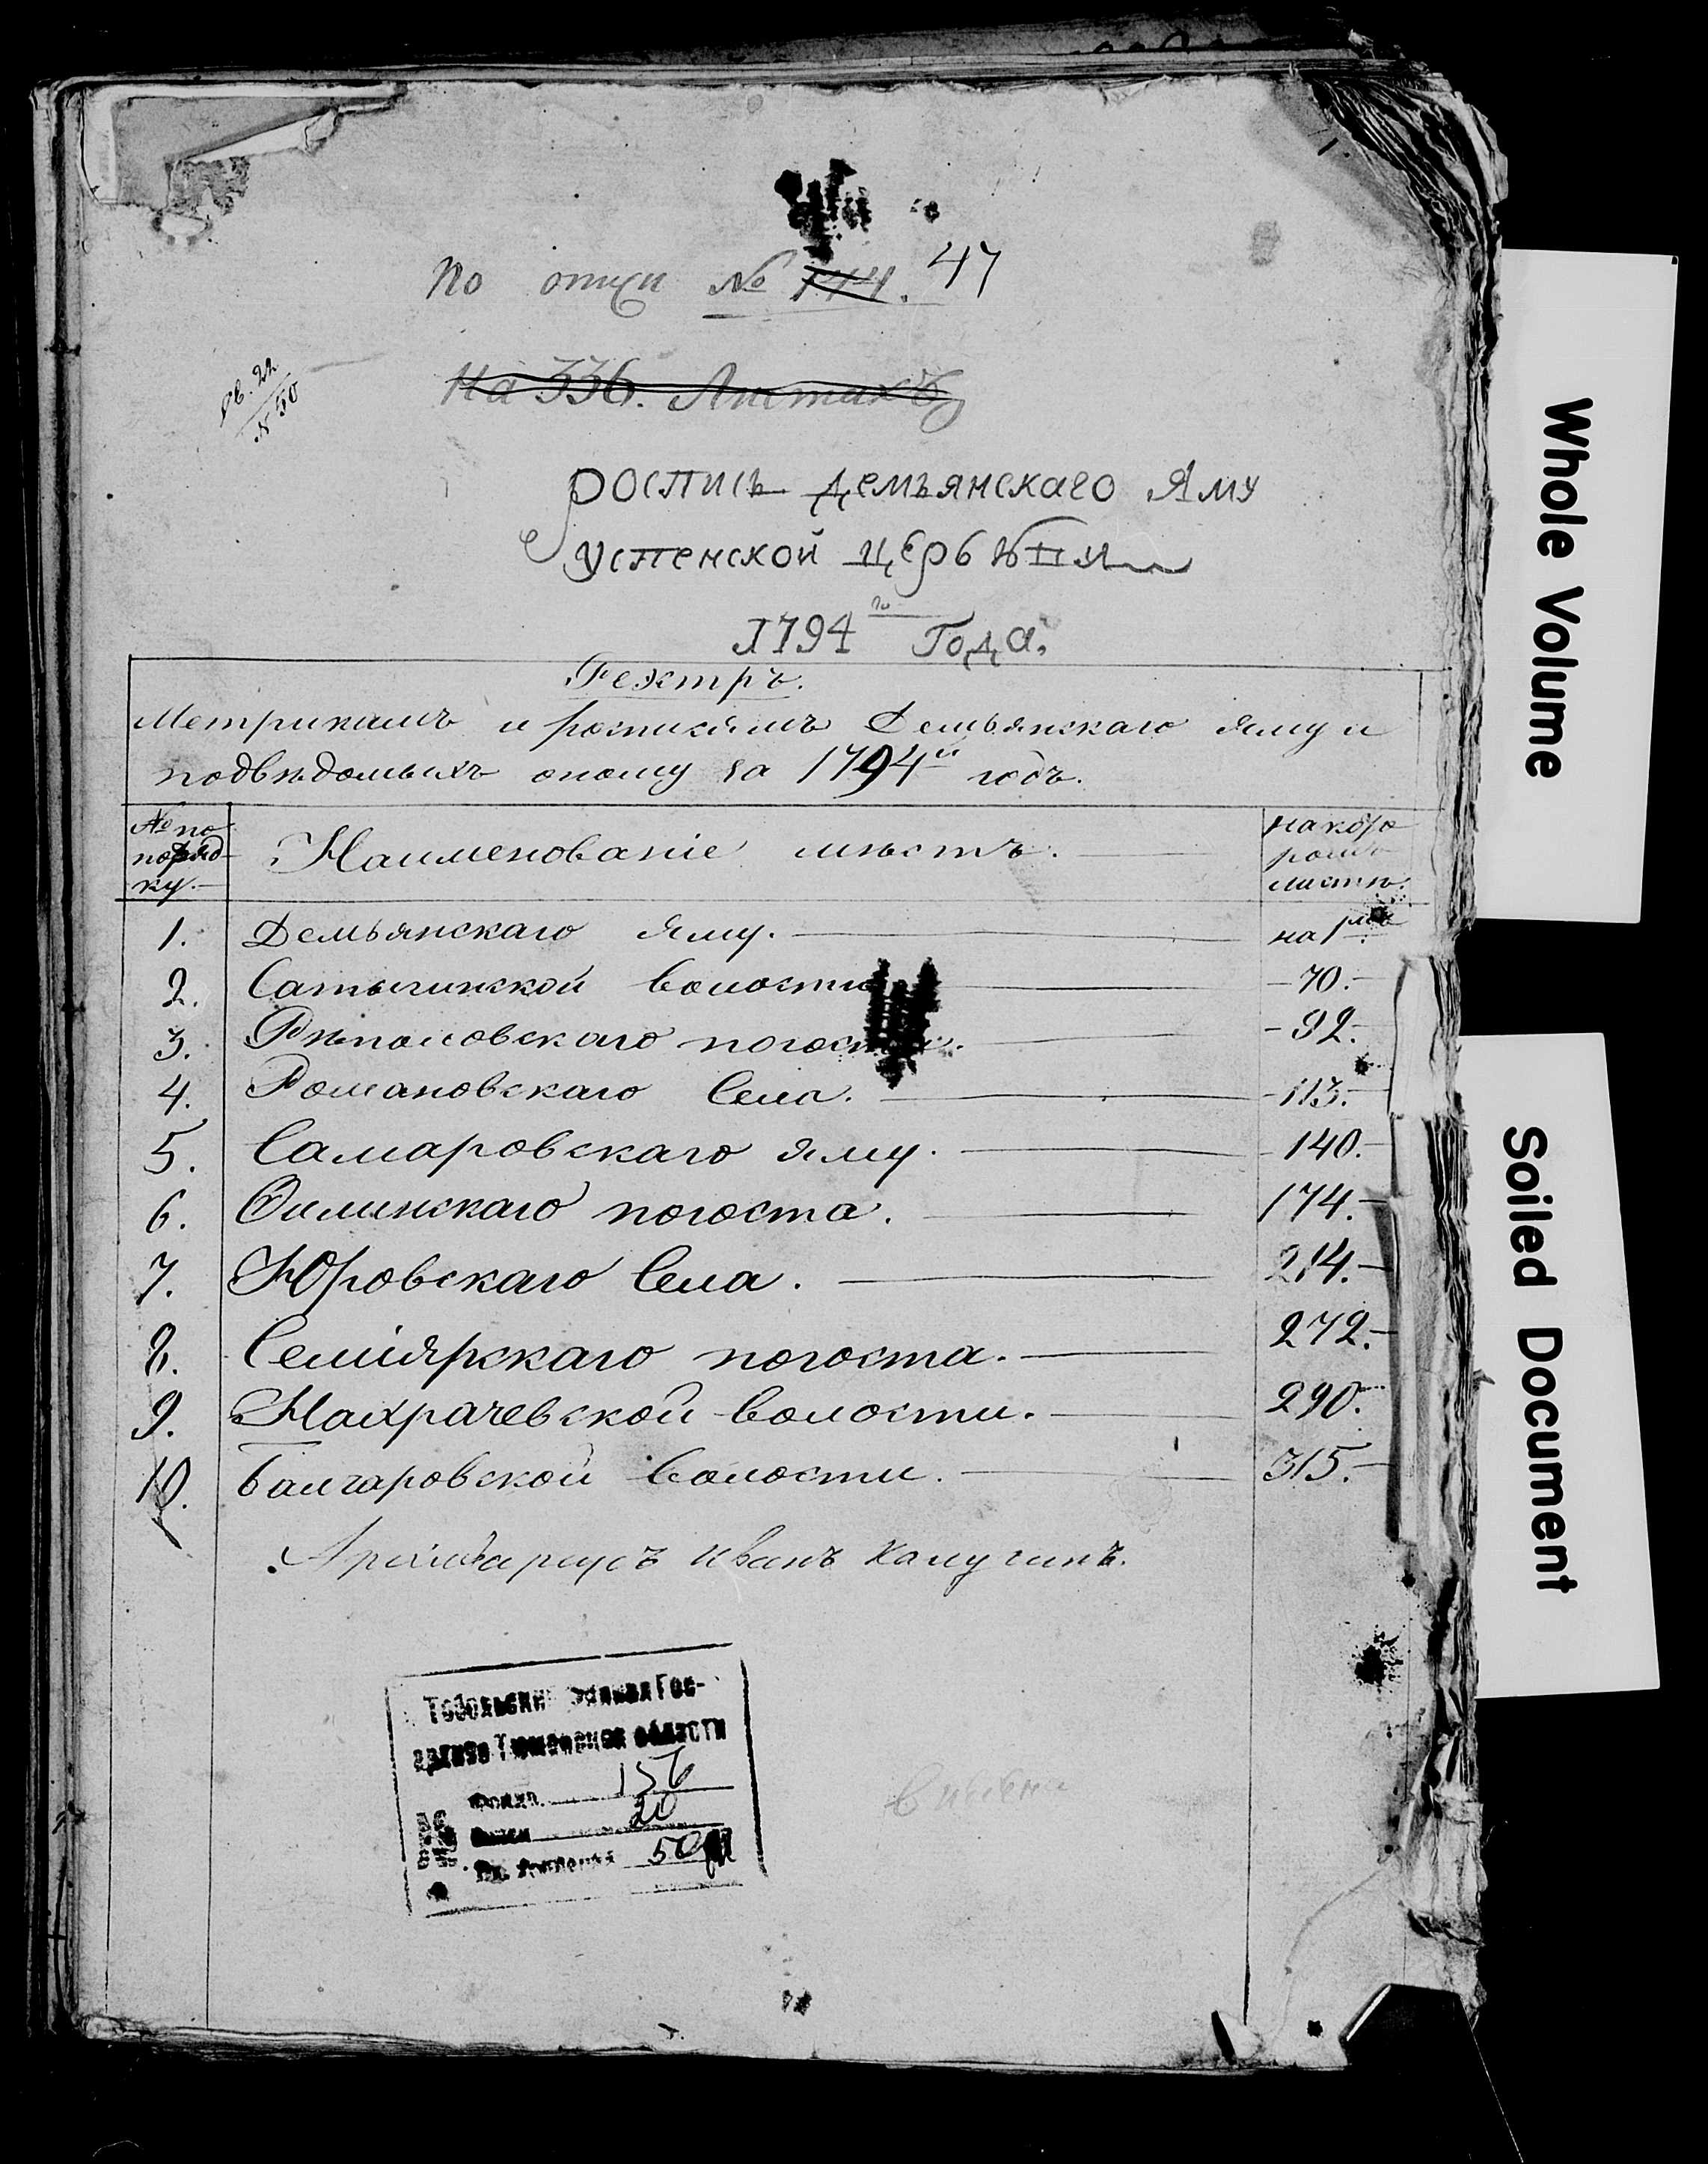 По описи № 114. 47
Св. 22
№ 50
На 336. Листахъ
роспись демьянскаго Яму
успенской церьквии
1794го Года.
Рехстръ.
Метрикамъ и росписямъ Демьянскаго яму и
подвѣдомыхъ оному за 1794й годъ.
№ по поряд-ку.
Наименованіе мѣстъ.
на кото ромъ листѣ.
1. Демьянскаго яму. на 1мъ
2. Сатыгинской волости 70.
3. Рѣполовскаго погоста. 92.
4. Романовскаго Села. 113.
5. Самаровскаго яму. 140.
6. Филинскаго погоста. 174.
7. Юровскаго Села. 214.
8. Семіярскаго погоста. 272.
9. Нахрачевской волости. 290.
10. Балчаровской волости. 315.
Архиваріусъ Иванъ Калугинъ.
Тобольский филиал Гос-
архива Тюменской области
Фонд 156
Опись 20
Ед. хранения 50
Whole Volume
Soiled Document